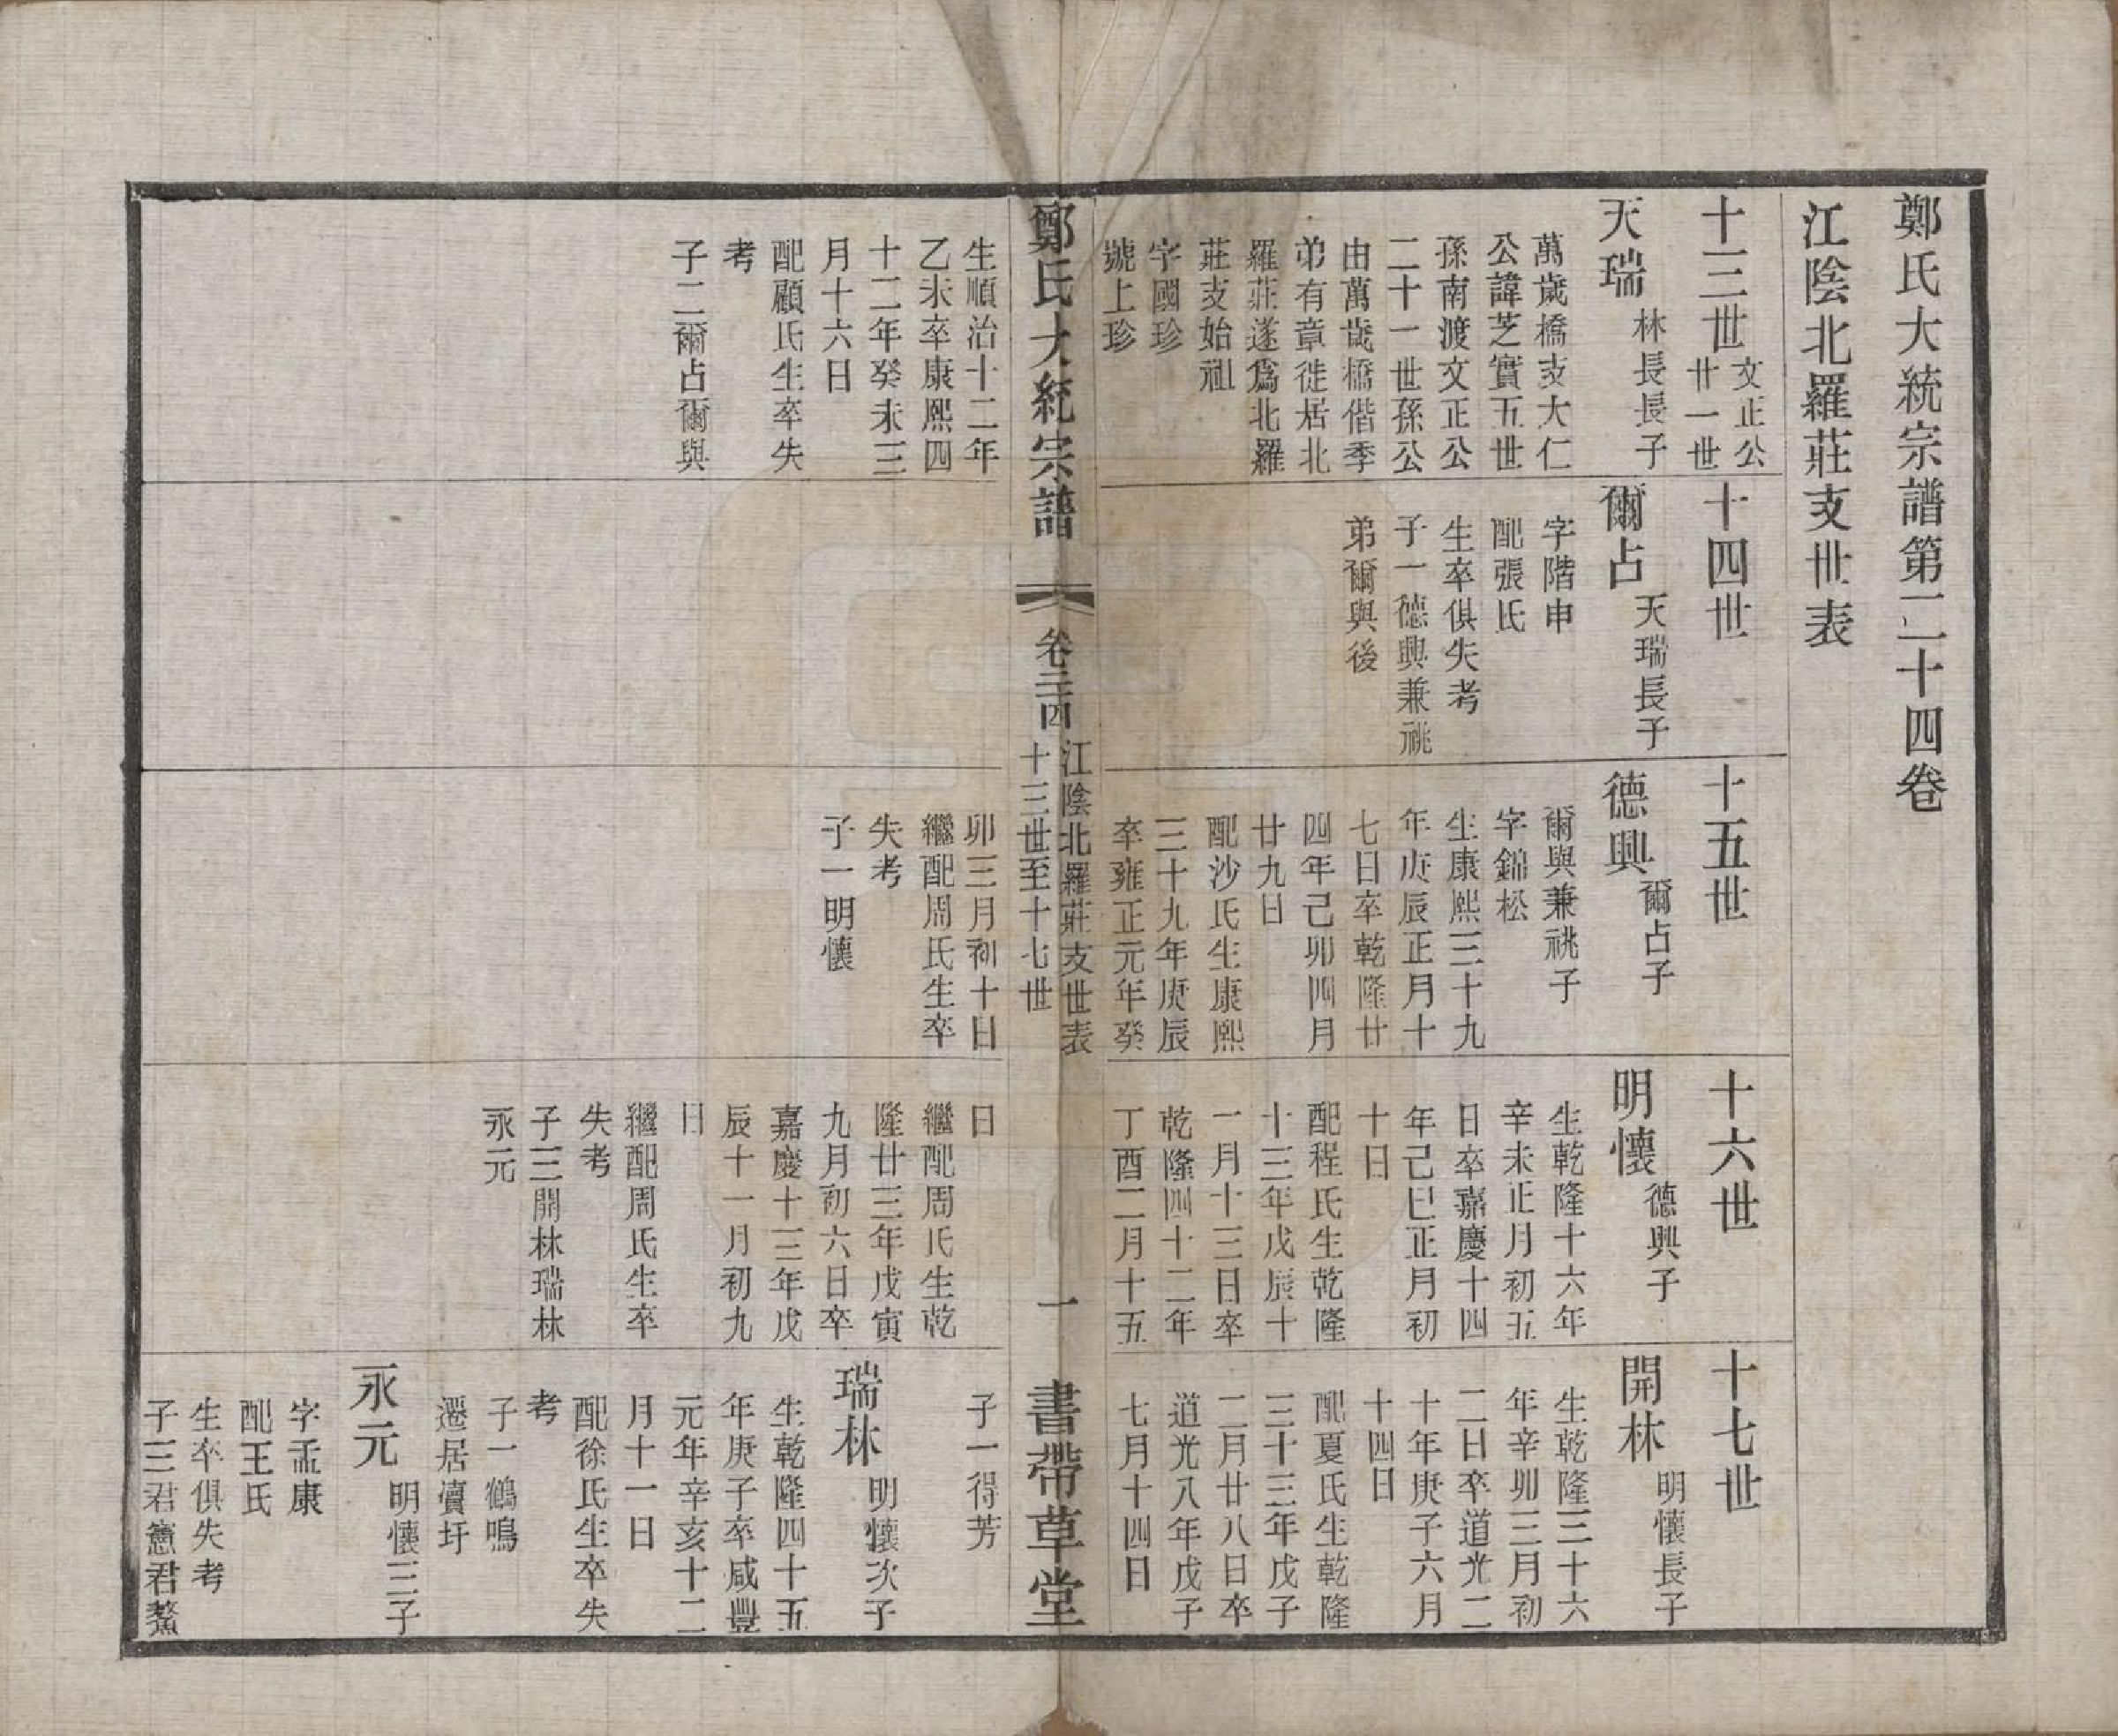 鄭氏大統宗譜第二十四卷
江陰北羅莊支世表
十三世
文正公
廿一世
天瑞
林長長子
萬歲橋支大仁
公諱芝實五世
孫南渡文正公
二十一世孫公
由萬歲橋偕季
弟有章徙居北
羅莊遂爲北羅
莊支始祖
字國珍
號上珍
生順治十二年
乙未卒康熙四
十二年癸未三
月十六日
配顧氏生卒失
考
子二爾占爾與
十四世
爾占
天瑞長子
字階申
配張氏
生卒俱失考
子一德興兼祧
弟爾與後
十五世
德興
爾占子
爾與兼祧子
字錦松
生康熙三十九
年庚辰正月十
七日卒乾隆廿
四年己卯四月
廿九日
配沙氏生康熙
三十九年庚辰
卒雍正元年癸
卯三月初十日
繼配周氏生卒
失考
子一明懷
十六世
明懷
德興子
生乾隆十六年
辛未正月初五
日卒嘉慶十四
年己巳正月初
十日
配程氏生乾隆
十三年戊辰十
一月十三日卒
乾隆四十二年
丁酉二月十五
日
繼配周氏生乾
隆廿三年戊寅
九月初六日卒
嘉慶十三年戊
辰十一月初九
日
繼配周氏生卒
失考
子三開林瑞林
永元
十七世
開林
明懷長子
生乾隆三十六
年辛卯三月初
二日卒道光二
十年庚子六月
十四日
配夏氏生乾隆
三十三年戊子
二月廿八日卒
道光八年戊子
七月十四日
子一得芳
瑞林
明懷次子
生乾隆四十五
年庚子卒咸豐
元年辛亥十二
月十一日
配徐氏生卒失
考
子一鶴鳴
遷居瀆圩
永元
明懷三子
字孟康
配王氏
生卒俱失考
子三君憲君鰲
鄭氏大統宗譜
卷二十四
江陰北羅莊支世表
十三世至十七世
一
書帶草堂